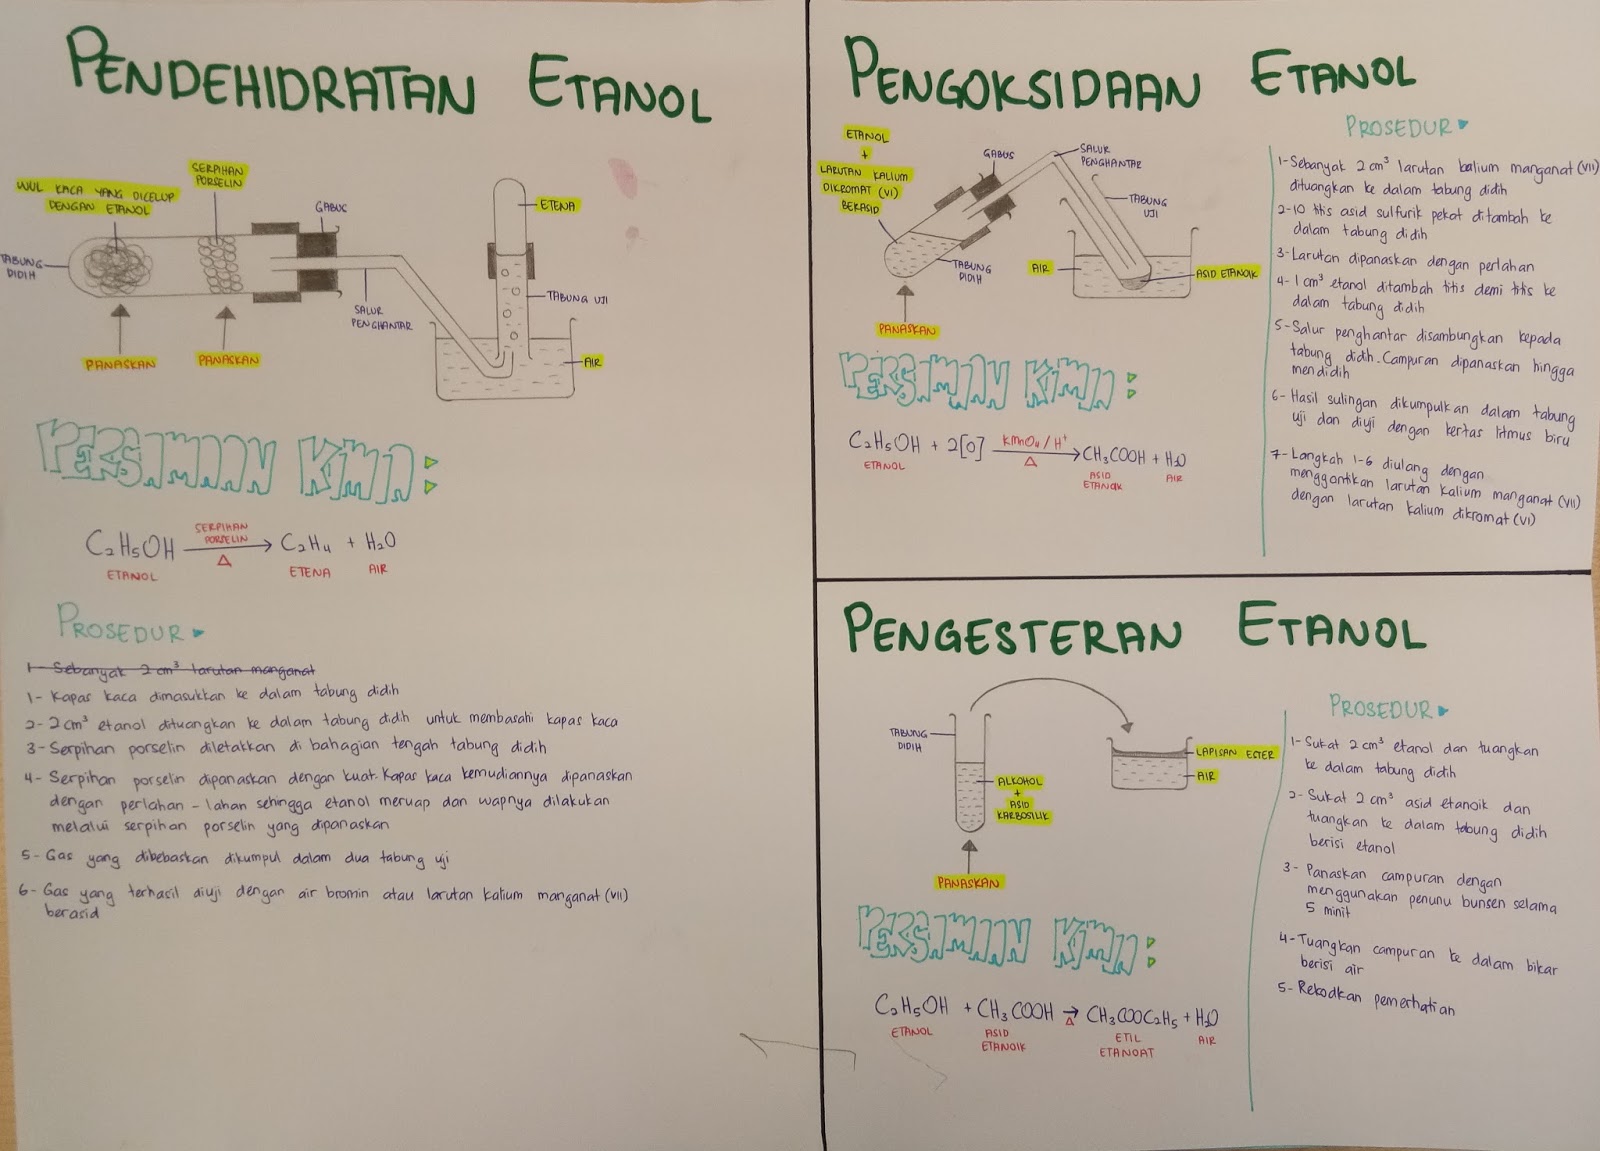 PENDEHIDRATAN ETANOL
WUL KACA YANG DICELUP
DENGAN ETANOL
SERPIHAN
PORSELIN
GABUS
ETENA
TABUNG
DIDIH
SALUR
PENGHANTAR
TABUNG UJI
AIR
PANASKAN
PANASKAN
PERSAMAAN KIMIA:
C₂H₅OH SERPIHAN PORSELIN Δ → C₂H₄ + H₂O
ETANOL ETENA AIR
PROSEDUR
1- Sebanyak 2 cm³ larutan manganat
1- Kapas kaca dimasukkan ke dalam tabung didih
2- 2 cm³ etanol dituangkan ke dalam tabung didih untuk membasahi kapas kaca
3- Serpihan porselin diletakkan di bahagian tengah tabung didih
4- Serpihan porselin dipanaskan dengan kuat. Kapas kaca kemudiannya dipanaskan
dengan perlahan - lahan sehingga etanol meruap dan wapnya dilakukan
melalui serpihan porselin yang dipanaskan
5- Gas yang dibebaskan dikumpul dalam dua tabung uji
6- Gas yang terhasil diuji dengan air bromin atau larutan kalium manganat (VII)
berasid
PENGOKSIDAAN ETANOL
ETANOL
+
LARUTAN KALIUM
DIKROMAT (VI)
BERASID
GABUS
SALUR
PENGHANTAR
TABUNG
UJI
TABUNG
DIDIH
AIR
ASID ETANOIK
PANASKAN
PERSAMAAN KIMIA:
C₂H₅OH + 2[O] KMnO₄ / H⁺ Δ → CH₃COOH + H₂O
ETANOL ASID ETANOIK AIR
PROSEDUR
1- Sebanyak 2 cm³ larutan balium manganat (VII)
dituangkan ke dalam tabung didih
2- 10 titis asid sulfurik pekat ditambah ke
dalam tabung didih
3- Larutan dipanaskan dengan perlahan
4- 1 cm³ etanol ditambah titis demi titis ke
dalam tabung didih
5- Salur penghantar disambungkan kepada
tabung didih. Campuran dipanaskan hingga
mendidih
6- Hasil sulingan dikumpulkan dalam tabung
uji dan diuji dengan kertas litmus biru
7- Langkah 1-6 diulang dengan
menggantikan larutan kalium manganat (VII)
dengan larutan kalium dikromat (VI)
PENGESTERAN ETANOL
TABUNG
DIDIH
ALKOHOL
+
ASID
KARBOSILIK
LAPISAN ESTER
AIR
PANASKAN
PERSAMAAN KIMIA:
C₂H₅OH + CH₃COOH Δ → CH₃COOC₂H₅ + H₂O
ETANOL ASID ETANOIK ETIL ETANOAT AIR
PROSEDUR
1- Sukat 2 cm³ etanol dan tuangkan
ke dalam tabung didih
2- Sukat 2 cm³ asid etanoik dan
tuangkan ke dalam tabung didih
berisi etanol
3- Panaskan campuran dengan
menggunakan penunu bunsen selama
5 minit
4- Tuangkan campuran ke dalam bikar
berisi air
5- Rekodkan pemerhatian